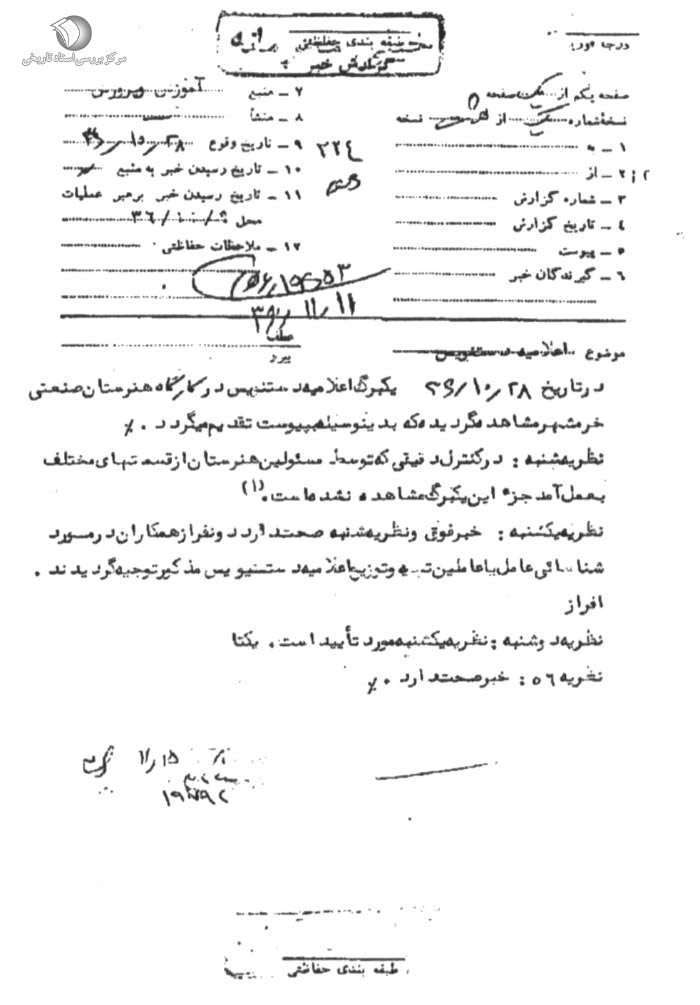 مرکز بررسی اسناد تاریخی
طبقه بندی حفاظتی
گزارش خبر
صفحه یکم از یک صفحه
نسخه شماره یک از نسخه
۱ ـ به
۲ ـ از
۳ ـ شماره گزارش
۴ ـ تاریخ گزارش
۵ ـ پیوست
۶ ـ گیرندگان خبر
۷ ـ منبع آموزش و پرورش
۸ ـ منشأ
۹ ـ تاریخ وقوع ۳۶/۱۰/۲۸
۱۰ ـ تاریخ رسیدن خبر به منبع
۱۱ ـ تاریخ رسیدن خبر برهبر عملیات
محل
۱۲ ـ ملاحظات حفاظتی
۳۲۴
۳۶/۱۱/۱۱
موضوع اعلامیه دستنویس
در تاریخ ۳۶/۱۰/۲۸ یکبرگ اعلامیه دستنویس در کارگاه هنرستان صنعتی
خرمشهر مشاهده گردیده که بدینوسیله بپیوست تقدیم میگردد ٪
نظریه شنبه : در کنترل دقیقی که توسط مسئولین هنرستان از قسمتهای مختلف
بعمل آمد جزء این یکبرگ مشاهده نشده است . (۱)
نظریه یکشنبه : خبر فوق و نظریه شنبه صحت دارد و نفر از همکاران در مورد
شناسائی عامل یا عاملین تهیه و توزیع اعلامیه دستنویس مذکور توجیه گردیدند .
افراز
نظریه دوشنبه : نظریه یکشنبه مورد تأیید است . یکتا
نظریه ۵۶ : خبر صحت دارد . ٪
۱۱/۱۵
طبقه بندی حفاظتی